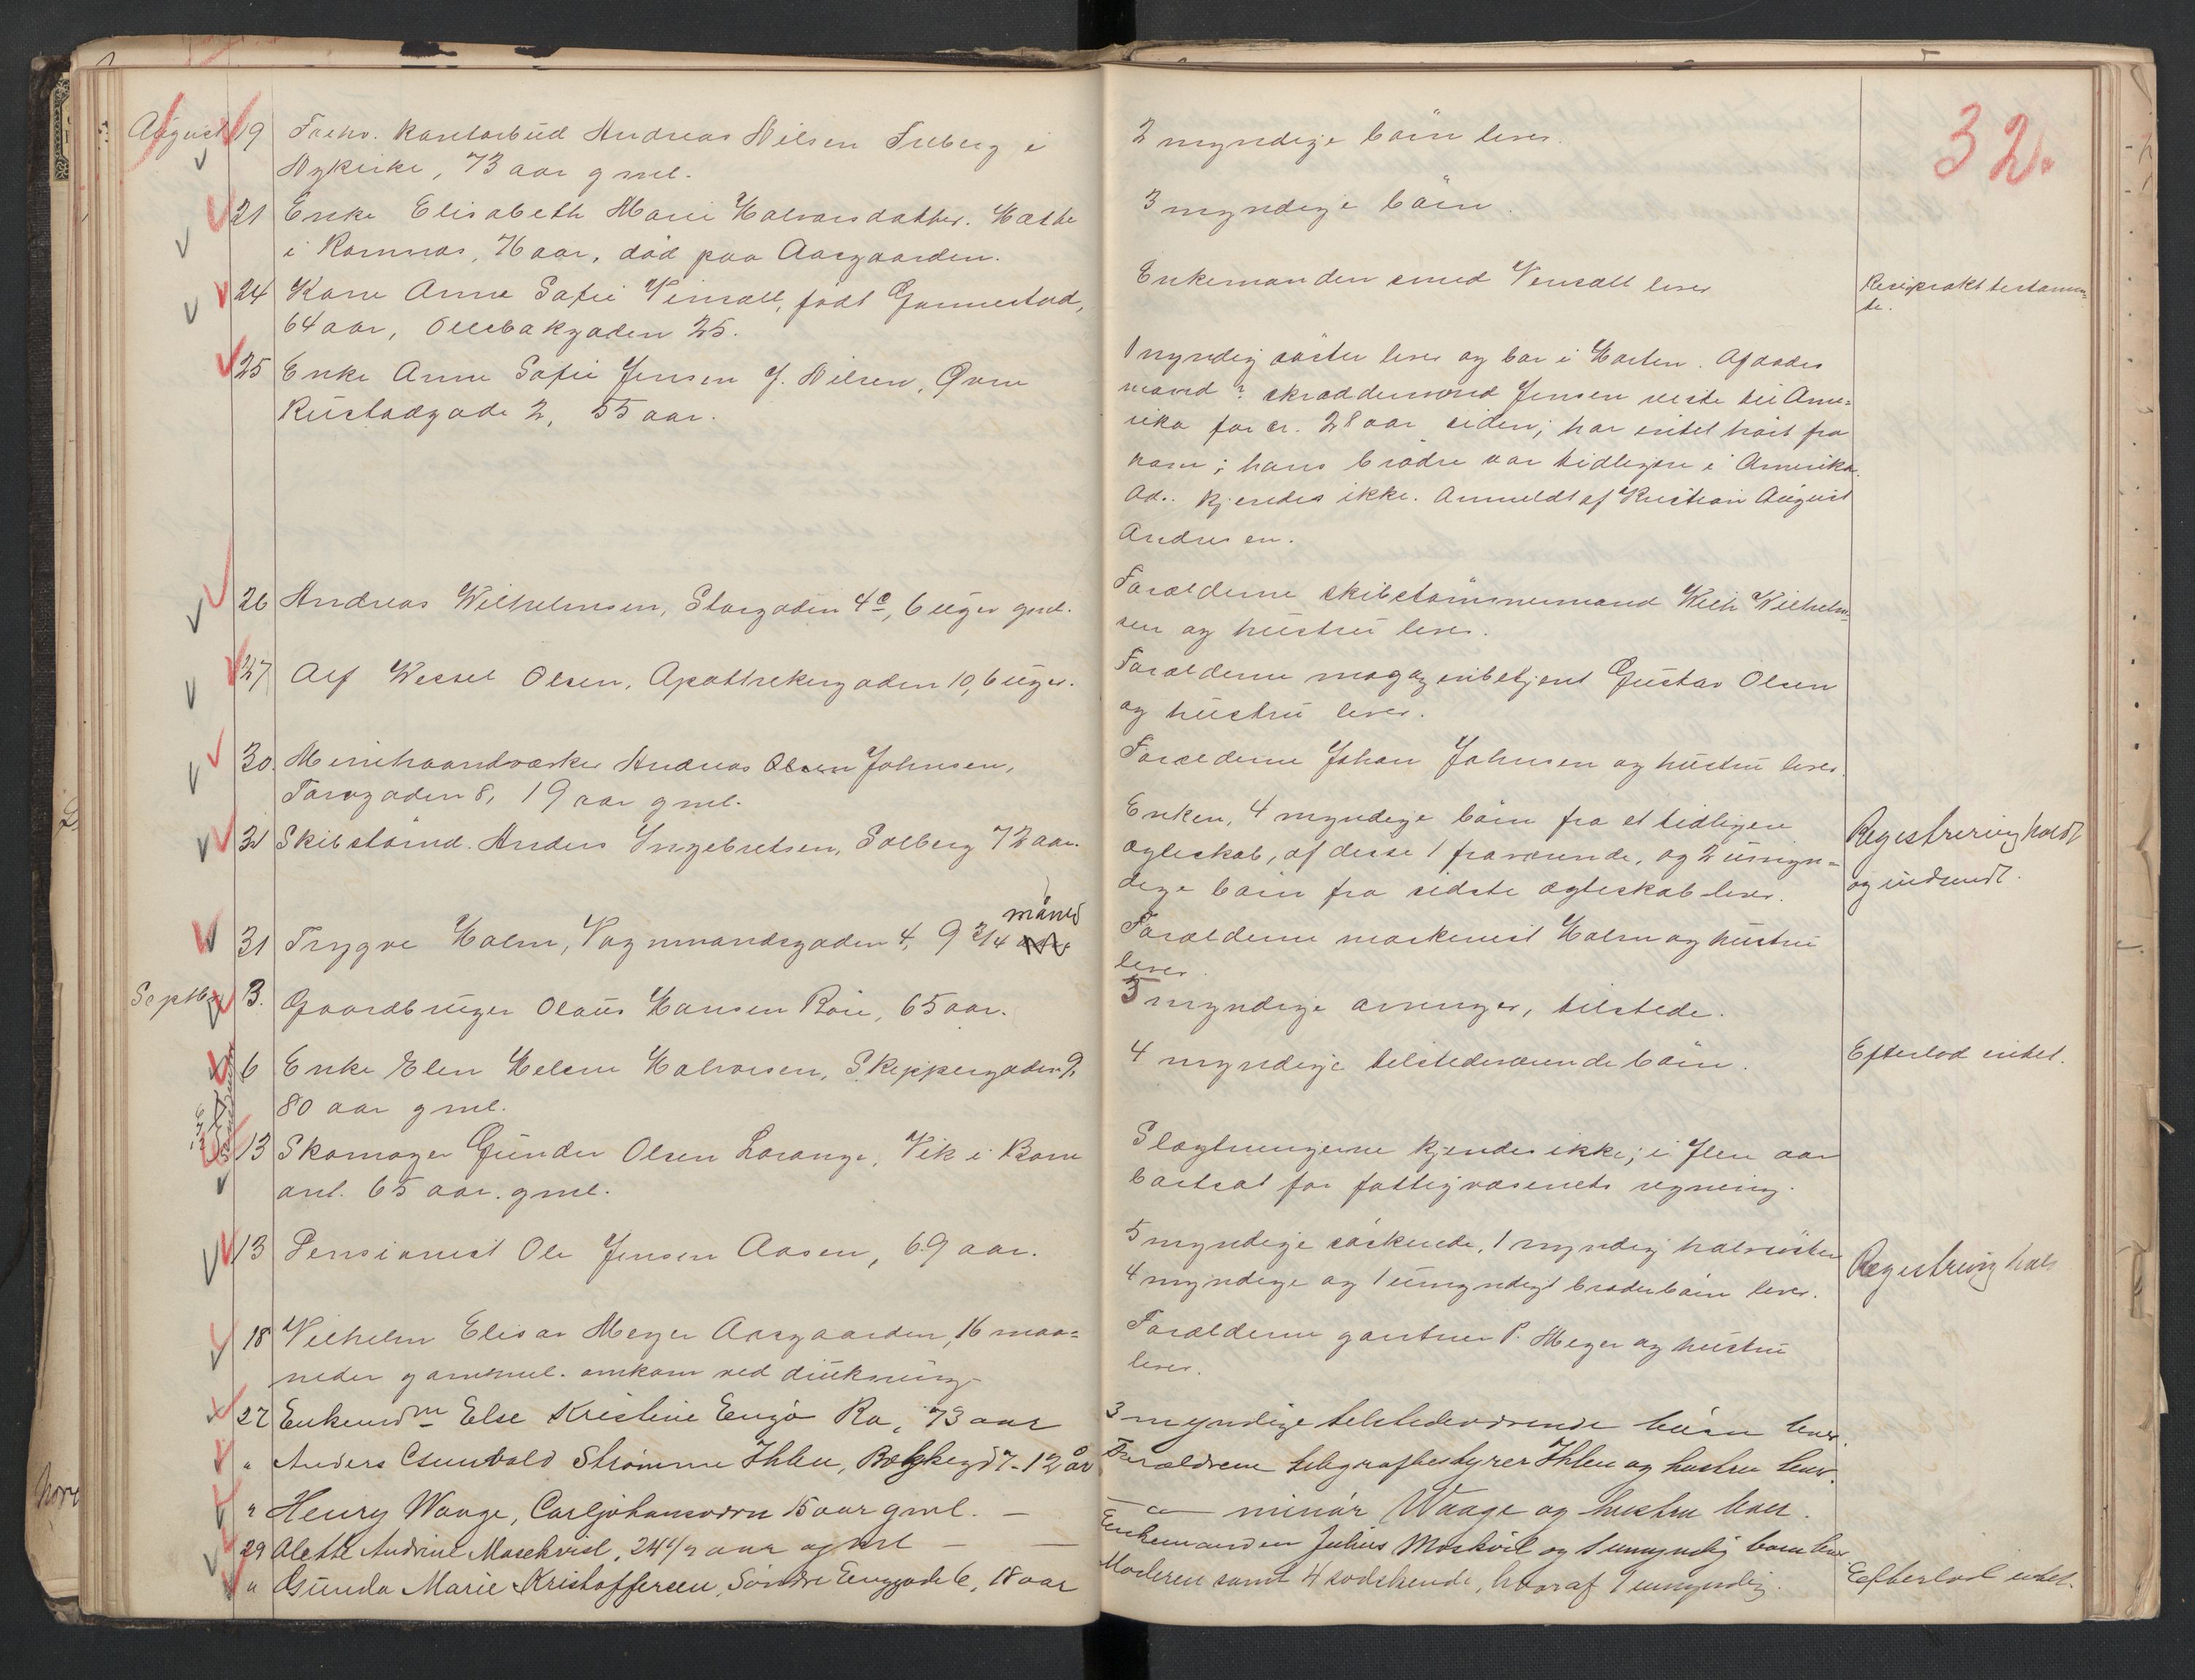 August 19 Forhv. Kontorbud Andreas Nilsen Freberg i
Nykirke, 73 aar gml.
2 myndige börn lever.
32.
21 Enke Elisabeth Marie Halvorsdatter. Hotte
i Ramnæs, 76 aar, död paa Aasgaarden.
3 myndige börn.
24 Kone Anne Sofie Vensall, född Gannestad,
64 aar, Ollebakgaden 25.
Enkemanden smed Vensall lever
Resiprokt testamen-
te.
25 Enke Anne Sofie Jensen f. Nilsen, Övre
Rustadgade 2, 55 aar.
1 myndig söster lever og bor i Horten. Afdödes
mand ? skræddersvend Jensen reiste til Ame-
rika for cr. 28 aar siden; har intet hört fra
ham; hans brödre var tidligere i Amerika.
Ad.. kjendes ikke. Anmeldt af Kristian August
Andresen.
26 Andreas Wilhelmsen, Storgaden 4c, 6 uger gml.
Forælderne skibstömmermand Wilh Wilhelm-
sen og hustru lever.
27 Alf Wessel Olsen, Apothekergaden 10, 6 uger.
Forælderne magazinbetjent Gustav Olsen
og hustru lever.
30. Minehaandværker Andreas Olsen Johnsen,
Torvgaden 8, 19 aar gml.
Forælderne Johan Johnsen og hustru lever.
31 Skibstömd. Anders Ingebretsen, Solberg 72 aar.
Enken, 4 myndige börn fra et tidligere
ægteskab, af disse 1 fraværende, og 2 umyn-
dige börn fra sidste ægteskab lever.
Registrering holdt
og indsendt.
måned
31 Trygve Holm, Vognmandsgaden 4, 9 3/4
Forælderne maskinist Holm og hustru
lever.
Septbr 3. Gaardbruger Olaus Hansen Röre, 65 aar.
5 myndige arvinger, tilstede.
6 Enke Elen Helene Halvorsen, Skippergaden 9,
80 aar gml.
4 myndige tilstedeværende börn.
Efterlod intet.
13 Skomager Gunder Olsen Lorange, Vik i Borre
anl. 65 aar. gml.
Slægtningerne kjendes ikke; i flere aar
bortsat for fattigvæsenets regning.
13 Pensionist Ole Jensen Aasen, 69 aar.
5 myndige söskende, 1 myndig halvsöster
4 myndige og 1 umyndigt broderbörn lever.
Registrering hol
18 Vilhelm Elisar Meyer Aasgaarden, 16 maa-
neder gammel. omkom ved drukning
Forælderne gartner P. Meyer og hustru
lever.
27 Enkemdm Else Kristine Engö Ra, 73 aar
3 myndige tilstedeværende börn lever.
" Anders Osmvald Strømme Ihlen, Bækkegd 7 - 12 år
Forældrene telegrafbestyrer Ihlen og hustru lever.
" Henry Waage, Carljohansværn 15 aar gml. —
— " — minör Waage og hustru lever.
29 Alette Andrine Moskvil, 24 1/2 aar gml — —
Enkemanden Julius Moskvil og 1 umyndig barn lever
" Gunda Marie Kristoffersen, Söndre Enggade 6, 18 aar
Moderen samt 4 södskende, hvoraf 1 umyndig.
Efterlod intet.